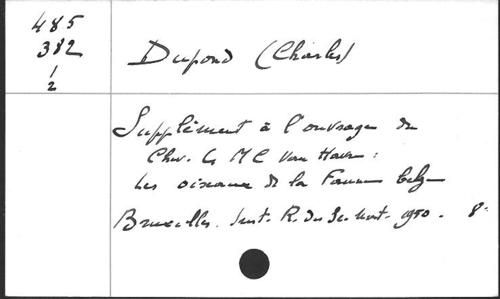 485
382
1
2
Dupond (Charles)
Supplément à l'ouvrage du
Chev. G M C van Havre :
Les oiseaux de la Faune belge
Bruxelles. Inst. R. des Sc. nat. 1950. 8°